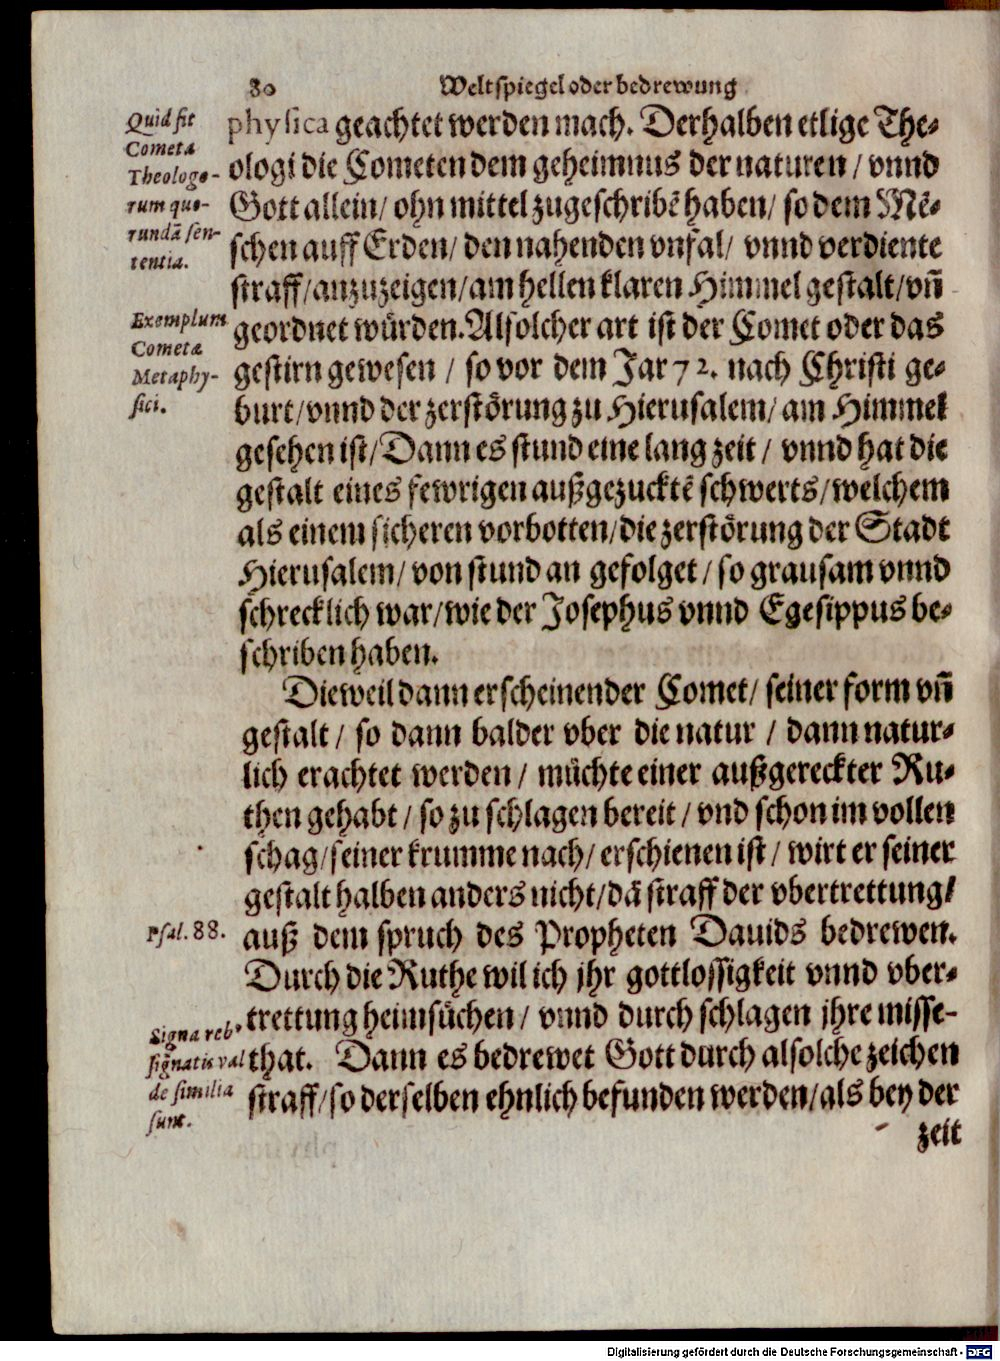 80 Weltspiegel oder bedrewung
Quid sit
Cometa
Theologo-
rum quo-
rundā sen-
tentia.
physica geachtet werden mach. Derhalben etlige The-
ologi die Cometen dem geheimnus der naturen / vnnd
Gott allein / ohn mittel zugeschribē haben / so dem Mē-
schen auff Erden / den nahenden vnfal / vnnd verdiente
straff / anzuzeigen / am hellen klaren Himmel gestalt / vn̄
Exemplum
Cometæ
Metaphy-
sici.
geordnet würden. Alsolcher art ist der Comet oder das
gestirn gewesen / so vor dem Jar 72. nach Christi ge-
burt / vnnd der zerstörung zu Hierusalem / am Himmel
gesehen ist / Dann es stund eine lang zeit / vnnd hat die
gestalt eines fewrigen außgezucktē schwerts / welchem
als einem sicheren vorbotten / die zerstörung der Stadt
Hierusalem / von stund an gefolget / so grausam vnnd
schrecklich war / wie der Josephus vnnd Egesippus be-
schriben haben.
Dieweil dann erscheinender Comet / seiner form vn̄
gestalt / so dann balder vber die natur / dann natur-
lich erachtet werden / müchte einer außgereckter Ru-
then gehabt / so zu schlagen bereit / vnd schon im vollen
schag / seiner krumme nach / erschienen ist / wirt er seiner
gestalt halben anders nicht / dā straff der vbertrettung /
Psal. 88.
auß dem spruch des Propheten Dauids bedrewen.
Durch die Ruthe wil ich jhr gottlossigkeit vnnd vber-
trettung heimsüchen / vnnd durch schlagen jhre misse-
Signa reb⁹
signatis val
de similia
sunt.
that. Dann es bedrewet Gott durch alsolche zeichen
straff / so derselben ehnlich befunden werden / als bey der
zeit
Digitalisierung gefördert durch die Deutsche Forschungsgemeinschaft - DFG